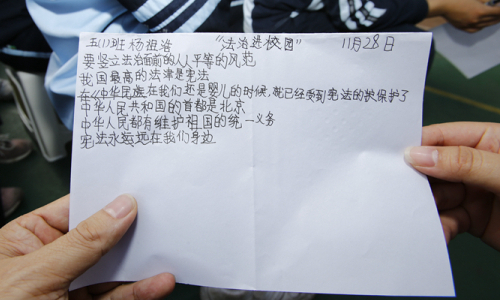 五(1)班 杨祖浩 “法治进校园” 11月28日
要坚立法治面前的人人平等的风范
我国最高的法津是宪法
在《中华民族在我们还是婴儿的时候,就已经受到宪法的保护了
中华人民共和国的首都是北京
中华人民都有维护祖国的统一义务
宪法永远在我们身边